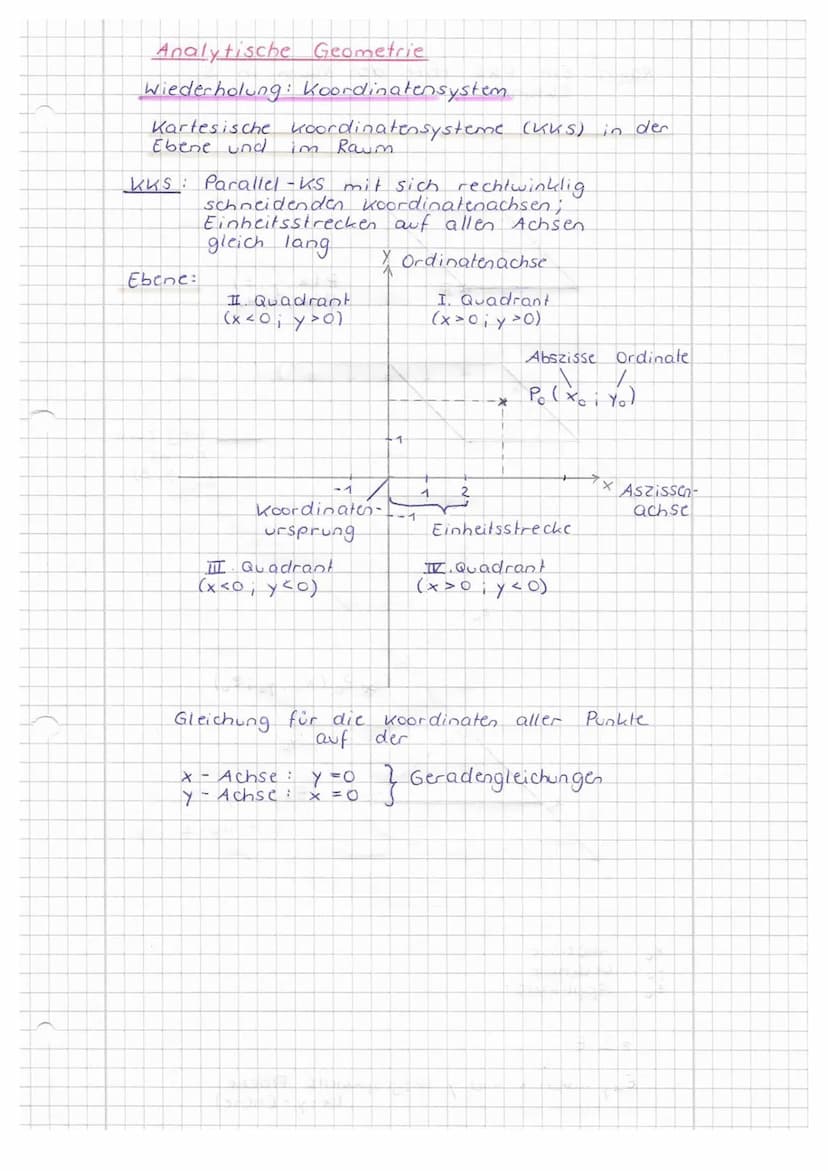 Analytische Geometrie
Wiederholung: Koordinatensystem
Kartesische Koordinatensysteme (KKS) in der
Ebene und im Raum
KKS: Parallel-KS mit sich rechtwinklig
schneidenden Koordinatenachsen;
Einheitsstrecken auf allen Achsen
gleich lang
y Ordinatenachse
Ebene:
II. Quadrant
(x<0; y>0)
I. Quadrant
(x>0; y>0)
Abszisse Ordinate
P₀(x₀; y₀)
1
-1
1
2
x Aszissen-
achse
Koordinaten-
ursprung
-1
Einheitsstrecke
III. Quadrant
(x<0; y<0)
IV. Quadrant
(x>0; y<0)
Gleichung für die Koordinaten aller Punkte
auf der
x-Achse: y=0 } Geradengleichungen
y-Achse: x=0